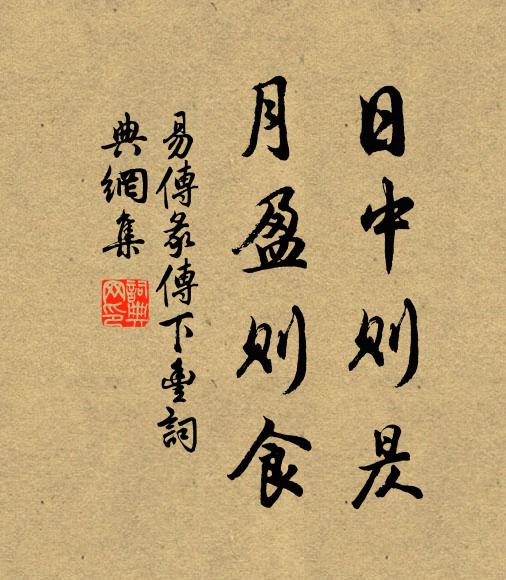 日中則昃
月盈則食
易傳彖傳下豐詞
典網集
詞典網印